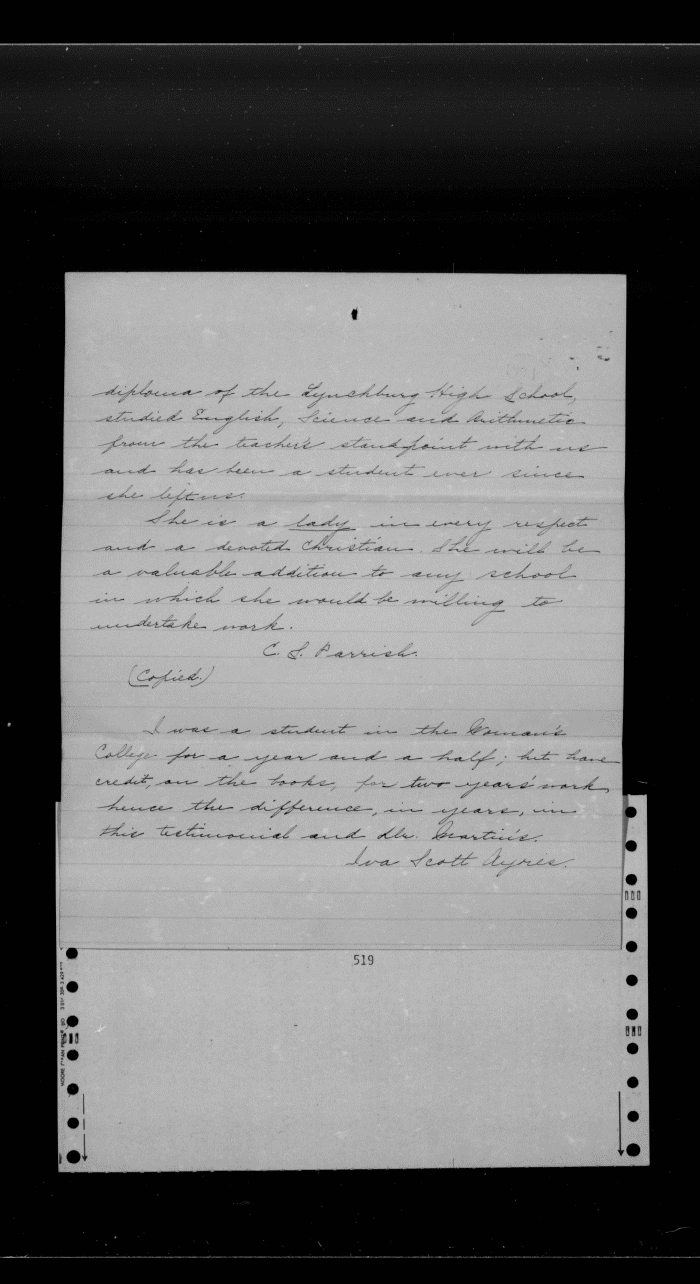 diploma of the Lynchburg High School,
studied English, Science and Arithmetic
from the teacher's standpoint with us
and has been a student ever since
she left us.
She is a lady in every respect
and a devoted Christian. She will be
a valuable addition to any school
in which she would be willing to
undertake work.
C. S. Parrish.
(Copied.)
I was a student in the Woman's
College for a year and a half; but have
credit, on the books, for two years' work,
hence the difference, in years, in
this testimonial and Mr. Martin's.
Iva Scott Ayres.
519